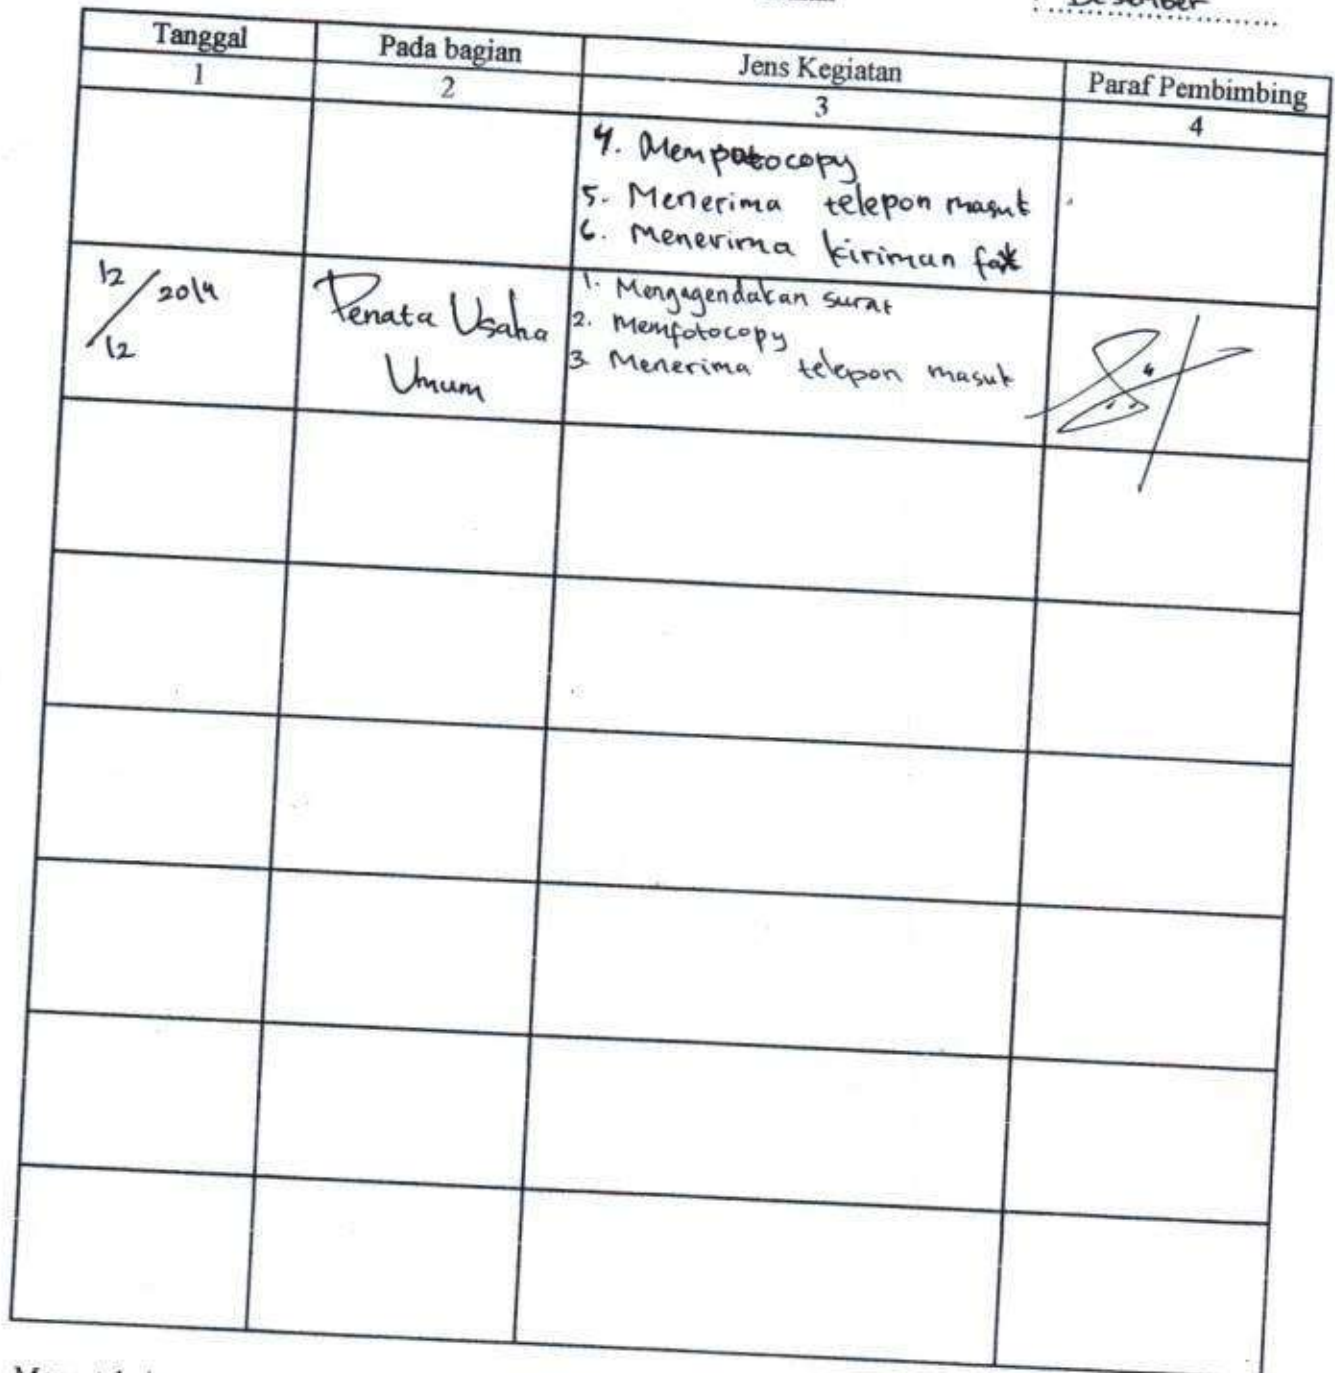 : Desember
Tanggal Pada bagian Jens Kegiatan Paraf Pembimbing
1 2 3 4
4. Mempotocopy
5. Menerima telepon masuk
6. Menerima kiriman fax
12/12 2014 Penata Usaha Umum
1. Mengagendakan surat
2. Memfotocopy
3 Menerima telepon masuk